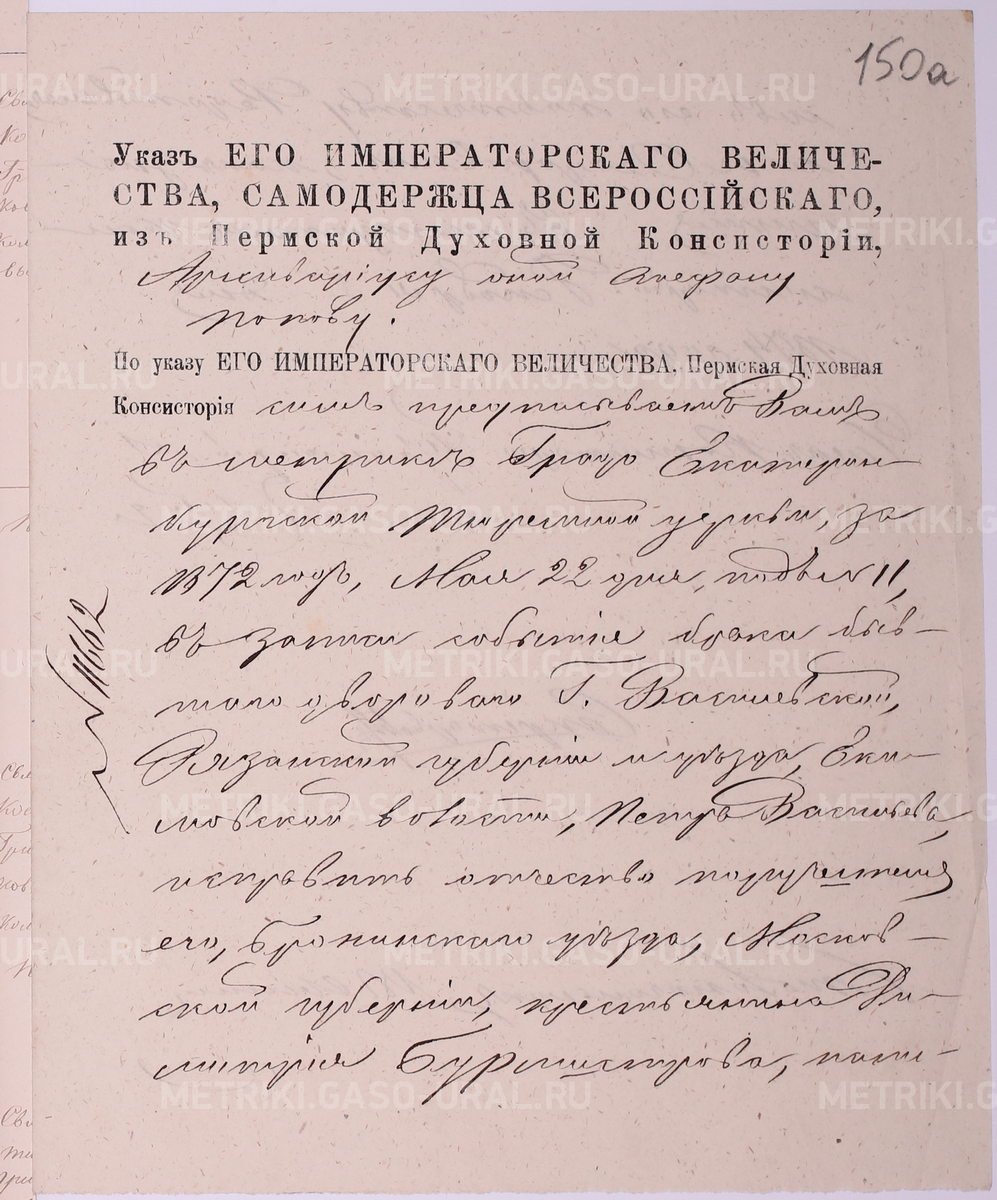 150а
Указъ ЕГО ИМПЕРАТОРСКАГО ВЕЛИЧЕ-
СТВА, САМОДЕРЖЦА ВСЕРОССІЙСКАГО,
изъ Пермской Духовной Консисторіи,
Архиваріусу оной Стефану
Попову.
По указу ЕГО ИМПЕРАТОРСКАГО ВЕЛИЧЕСТВА, Пермская Духовная
Консисторія симъ предписываетъ Вамъ
въ метрикѣ Градо Екатерин-
бургской Тюремной церкви, за
1872 годъ, Мая 22 дня, подъ № 11,
въ записи событія брака быв-
шаго двороваго Г. Васильевской,
Рязанской губерніи и уѣзда, Еки-
мовской волости, Петра Васильева,
исправить отчество поручителя
его, Бронницкаго уѣзда, Москов-
ской губерніи, крестьянина Ди-
митрія Бурмистрова, напи-
№ 11662
METRIKI.GASO-URAL.RU